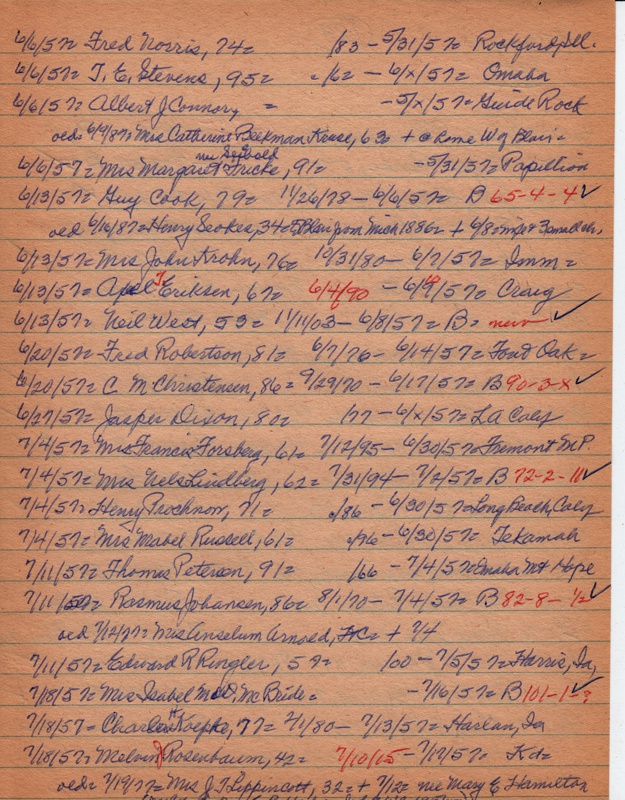 6/6/57= Fred Norris, 74= /83 - 5/31/57= Rockford, Ill.
6/6/57= T. E. Stevens, 95= c/62 - 6/x/57= Omaha
6/6/57= Albert J Connor, = - 5/x/57= Guide Rock
oed= 6/9/87= Mrs Catherine Beekman Kruse, 63= + @ home W of Blair=
nee Seybold
6/6/57= Mrs Margaret Fricke, 91= - 5/31/57= Papillion
6/13/57= Guy Cook, 79= 11/26/78 - 6/6/57= B 65-4-4 ✓
oed 6/16/87= Henry Stokes, 34= Blair from Mich 1886= + 6/8= 3 small ch,
6/13/57= Mrs John Krohn, 76= 10/31/80 - 6/7/57= Imm=
6/13/57= Axel T Eriksen, 67= 6/4/90 - 6/9/57= Craig
6/13/57= Neil West, 53= 11/11/03 - 6/8/57= B= new ✓
6/20/57= Fred Robertson, 81= 6/7/76 - 6/14/57= Oak=
6/20/57= C M Christensen, 86= 9/29/70 - 6/17/57= B 90-3-x ✓
6/27/57= Jasper Dixon, 80= /77 - 6/x/57= LA Caly
7/4/57= Mrs Francis Forsberg, 61= 7/12/95 - 6/30/57= Fremont M.P.
7/4/57= Mrs Nels Lindberg, 62= 7/31/94 - 7/2/57= B 72-2-11 ✓
7/4/57= Henry Prochnow, 71= c/86 - 6/30/57= Long Beach, Caly
7/4/57= Mrs Mabel Russell, 61= c/96 - 6/30/57= Tekamah
7/11/57= Thomas Petersen, 91= /66 - 7/4/57= Omaha Mt Hope
7/11/57= Rasmus Johansen, 86= 8/1/70 - 7/4/57= B 82-8-1/2 ✓
oed 7/12/77= Mrs Anselum Arnold, FC= + 7/4
7/11/57= Edward R Ringler, 57= /00 - 7/5/57= Harris, Ia,
7/18/57= Mrs Isabel McBride= - 7/16/57= B 101-1-? ✓
7/18/57= Charles H Koepke, 77= 2/1/80 - 7/13/57= Harlan, Ia
7/18/57= Melvin J Rosenbaum, 42= 7/10/15 - 7/14/57= Kd=
oed= 7/19/77= Mrs J. T Lippincott, 32= + 7/12= nee Mary E Hamilton